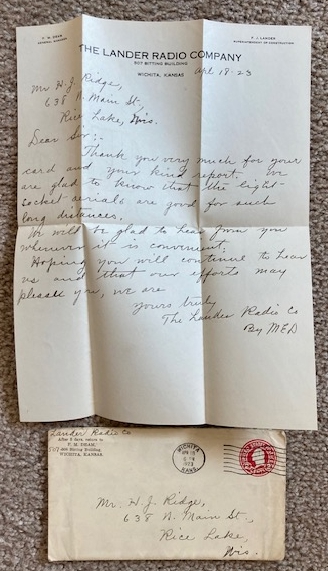 F. M. DEAM
GENERAL MANAGER
F. J. LANDER
SUPERINTENDENT OF CONSTRUCTION
THE LANDER RADIO COMPANY
507 BITTING BUILDING
WICHITA, KANSAS
Apl 18-23
Mr H. J. Ridge,
638 N. Main St,
Rice Lake, Wis.
Dear Sir:-
Thank you very much for your
card and your kind report. We
are glad to know that the light-
socket aerials are good for such
long distances.
We will be glad to hear from you
whenever it is convenient.
Hoping you will continue to hear
us and that our efforts may
please you, we are
yours truly
The Lander Radio Co
By MED
Lander Radio Co
After 5 days, return to
F. M. DEAM,
507 Bitting Building
WICHITA, KANSAS
WICHITA
1923
KANS.
Mr. H. J. Ridge,
638 N. Main St.,
Rice Lake,
Wis.